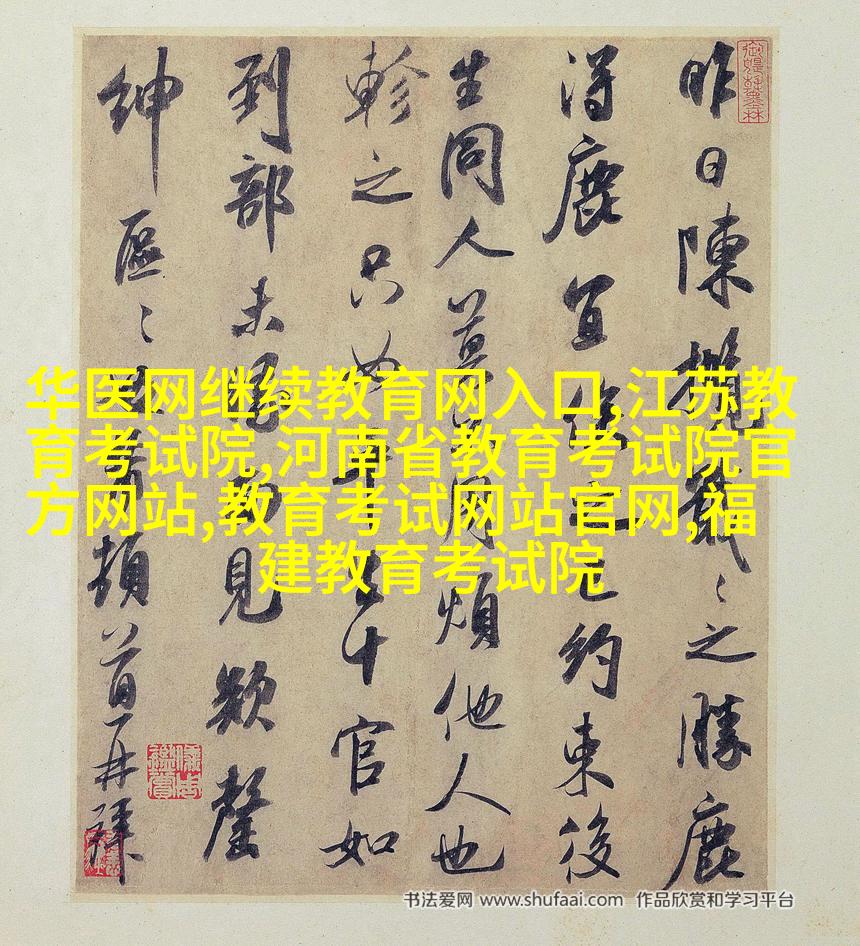 昨日陳攬戢〻之勝鹿
得鹿宜之已約束後
生同人用煩他人也
軫之只如十官如
到部未見欵罄
紳區〻芾頓首再拜
华医网继续教育网入口,江苏教
育考试院,河南省教育考试院官
方网站,教育考试网站官网,福
建教育考试院
书法爱网 www.shufaai.com 作品欣赏和学习平台